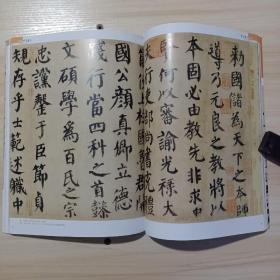 勅國儲為天下之本師
導乃元良之教將以
本固必由教先非求
賢何以審諭光祿大
夫行吏部尚書充禮
國公顏真卿立德
踐行當四科之首懿
文碩學為百氏之宗
忠讜罄于臣節貞
規存乎士範述職中